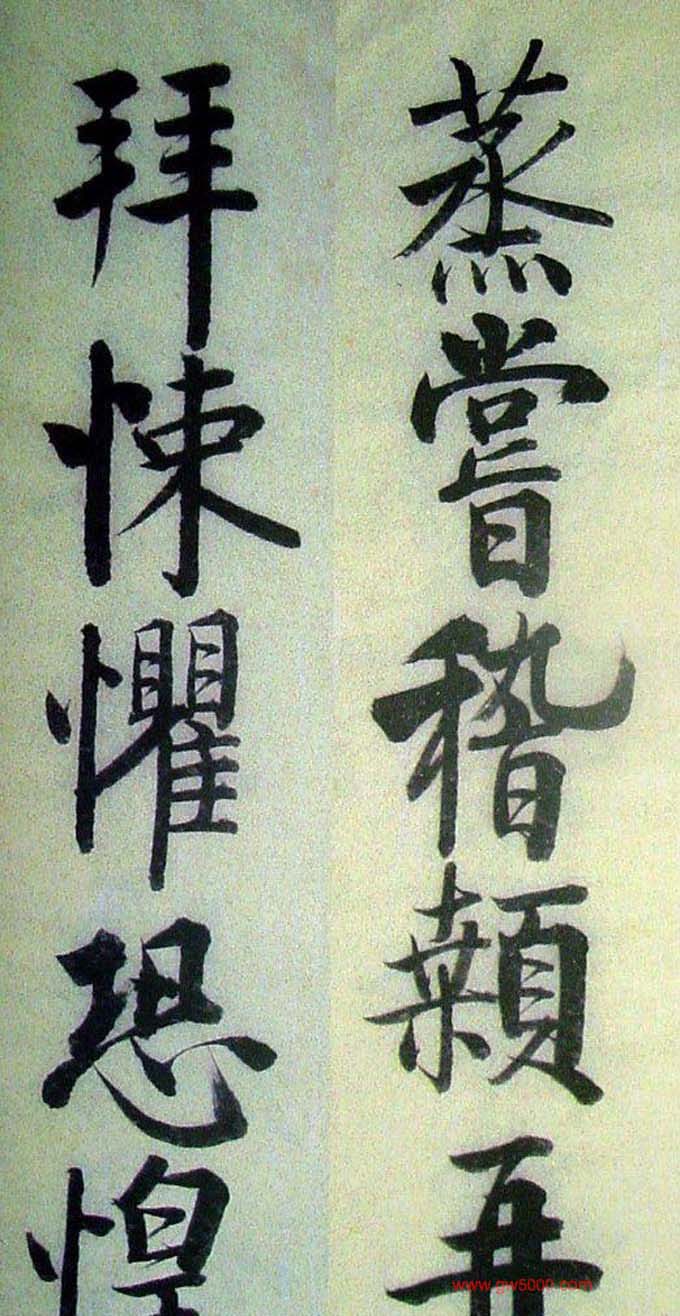 蒸嘗稽顙再
拜悚懼恐惶
www.gw5000.com